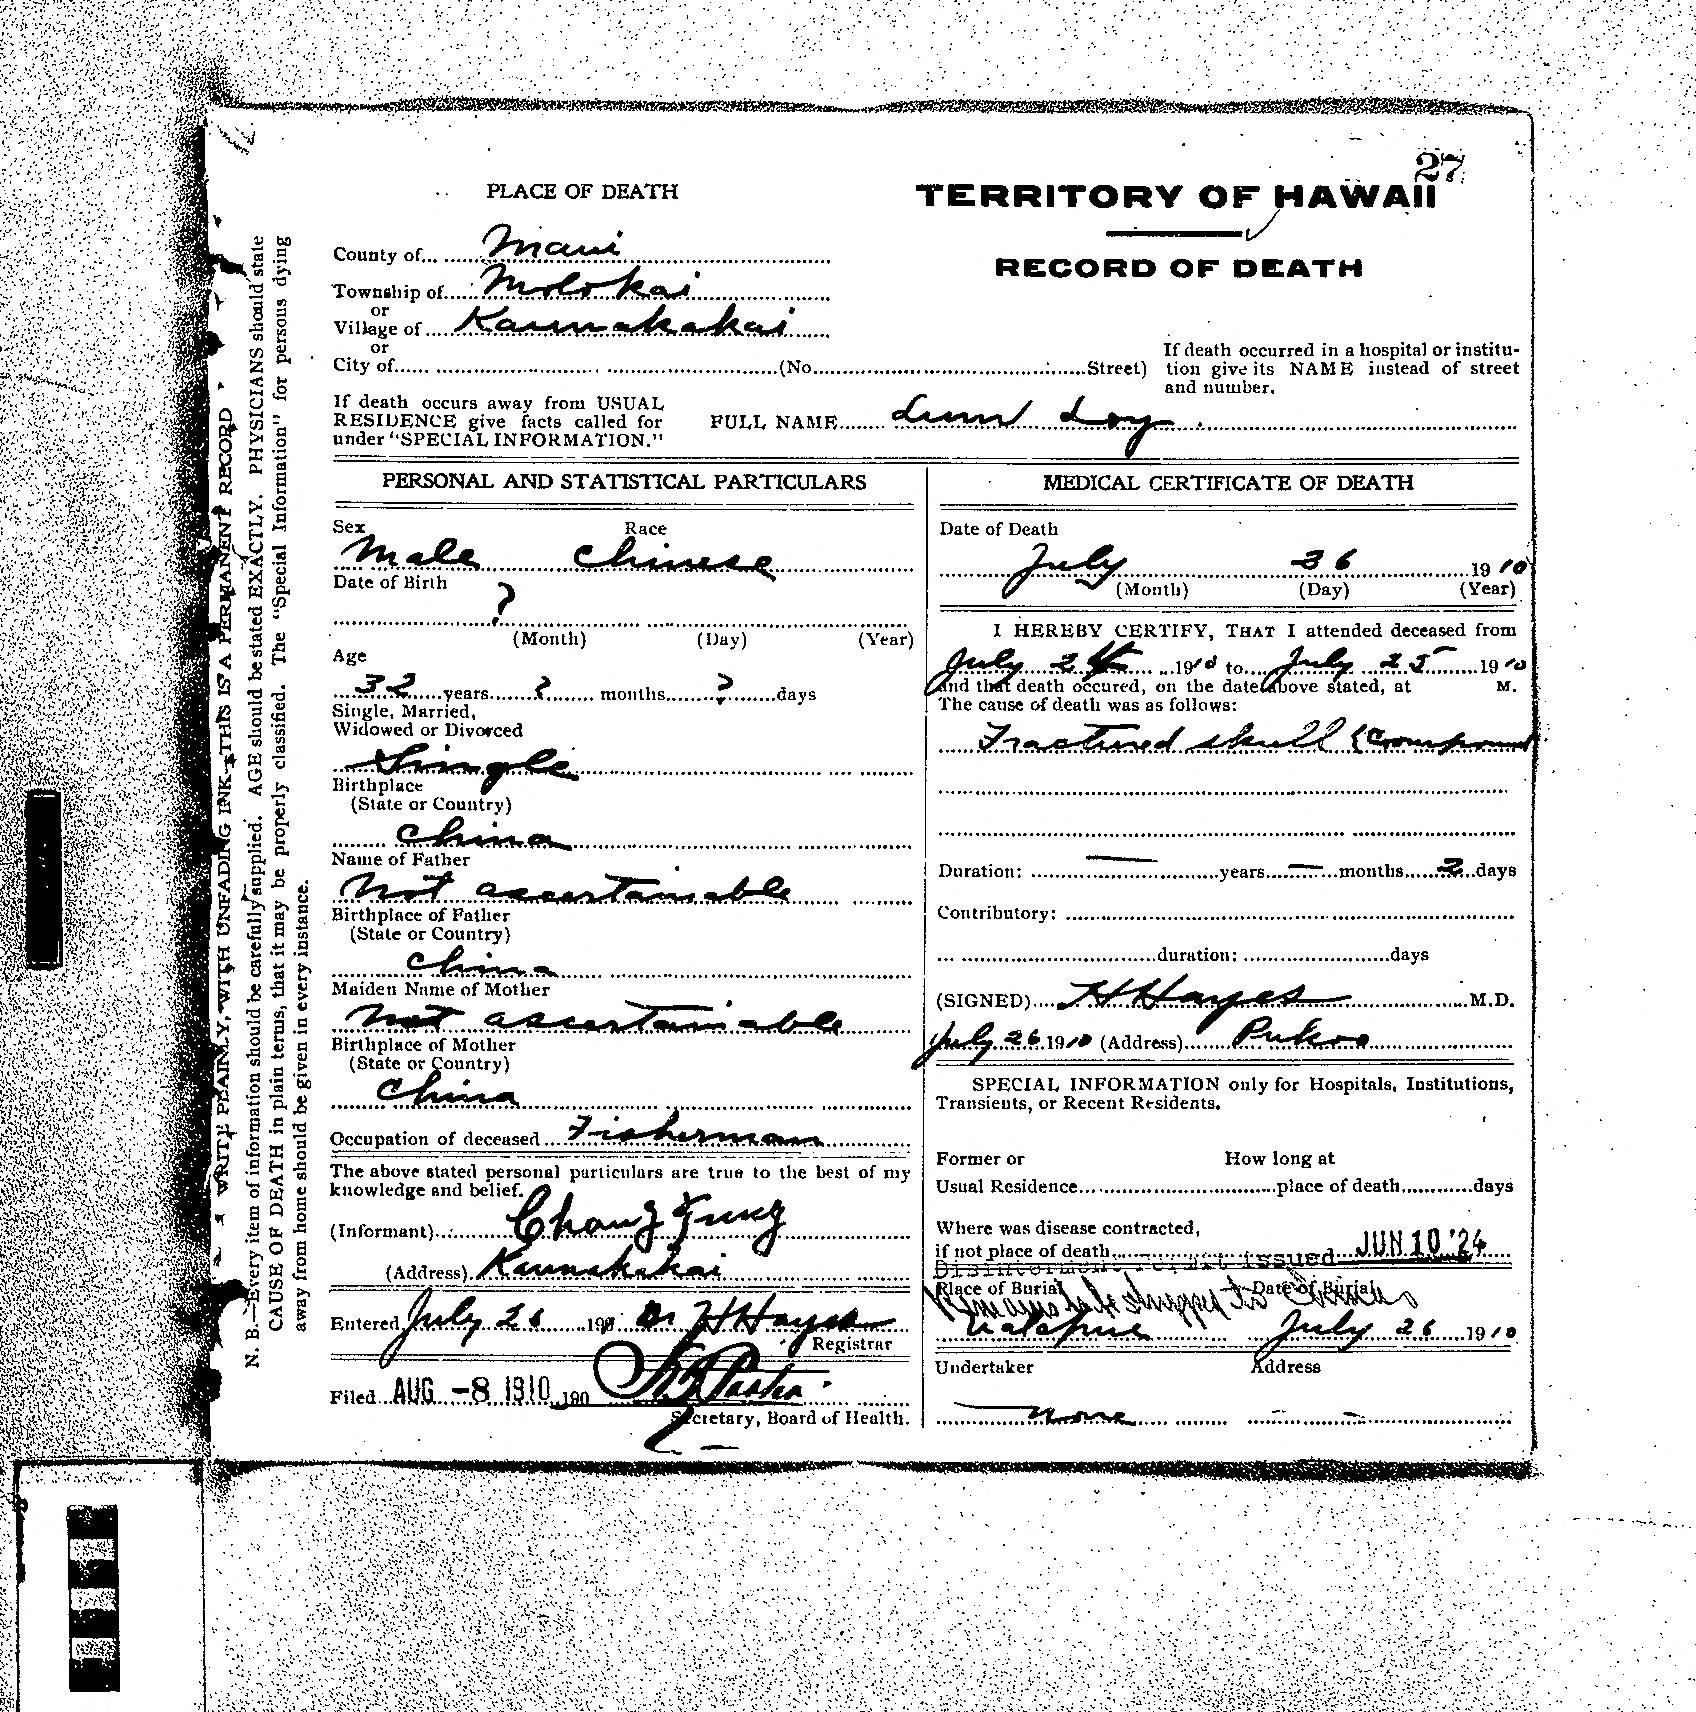 27
PLACE OF DEATH
TERRITORY OF HAWAII
RECORD OF DEATH
County of... Maui
Township of... Molokai
or
Village of... Kaunakakai
or
City of... (No... Street)
If death occurred in a hospital or institu-
tion give its NAME instead of street
and number.
If death occurs away from USUAL
RESIDENCE give facts called for
under "SPECIAL INFORMATION."
FULL NAME... Lum Loy
PERSONAL AND STATISTICAL PARTICULARS
Sex Race
Male Chinese
Date of Birth
?
(Month) (Day) (Year)
Age
32 years ? months ? days
Single, Married,
Widowed or Divorced
Single
Birthplace
(State or Country)
China
Name of Father
Not ascertainable
Birthplace of Father
(State or Country)
China
Maiden Name of Mother
Not ascertainable
Birthplace of Mother
(State or Country)
China
Occupation of deceased... Fisherman
The above stated personal particulars are true to the best of my
knowledge and belief.
(Informant)... Chong Fung
(Address) Kaunakakai
Entered July 26 190 Dr H Hayes
Registrar
Filed AUG -8 1910 190
Secretary, Board of Health.
MEDICAL CERTIFICATE OF DEATH
Date of Death
July 26 1910
(Month) (Day) (Year)
I HEREBY CERTIFY, THAT I attended deceased from
July 24 1910 to July 25 1910
and that death occured, on the date above stated, at M.
The cause of death was as follows:
Fractured skull (Compound
Duration: — years — months 2 days
Contributory:
duration: days
(SIGNED) H Hayes M.D.
July 26 1910 (Address) Pukoo
SPECIAL INFORMATION only for Hospitals, Institutions,
Transients, or Recent Residents.
Former or How long at
Usual Residence... place of death... days
Where was disease contracted,
if not place of death...
Disinterment Permit issued JUN 10 '24
Place of Burial Date of Burial
Remains to be shipped to China
July 26 1910
Undertaker Address
None — —
WRITE PLAINLY, WITH UNFADING INK—THIS IS A PERMANENT RECORD
N. B.—Every item of information should be carefully supplied. AGE should be stated EXACTLY. PHYSICIANS should state
CAUSE OF DEATH in plain terms, that it may be properly classified. The "Special Information" for persons dying
away from home should be given in every instance.